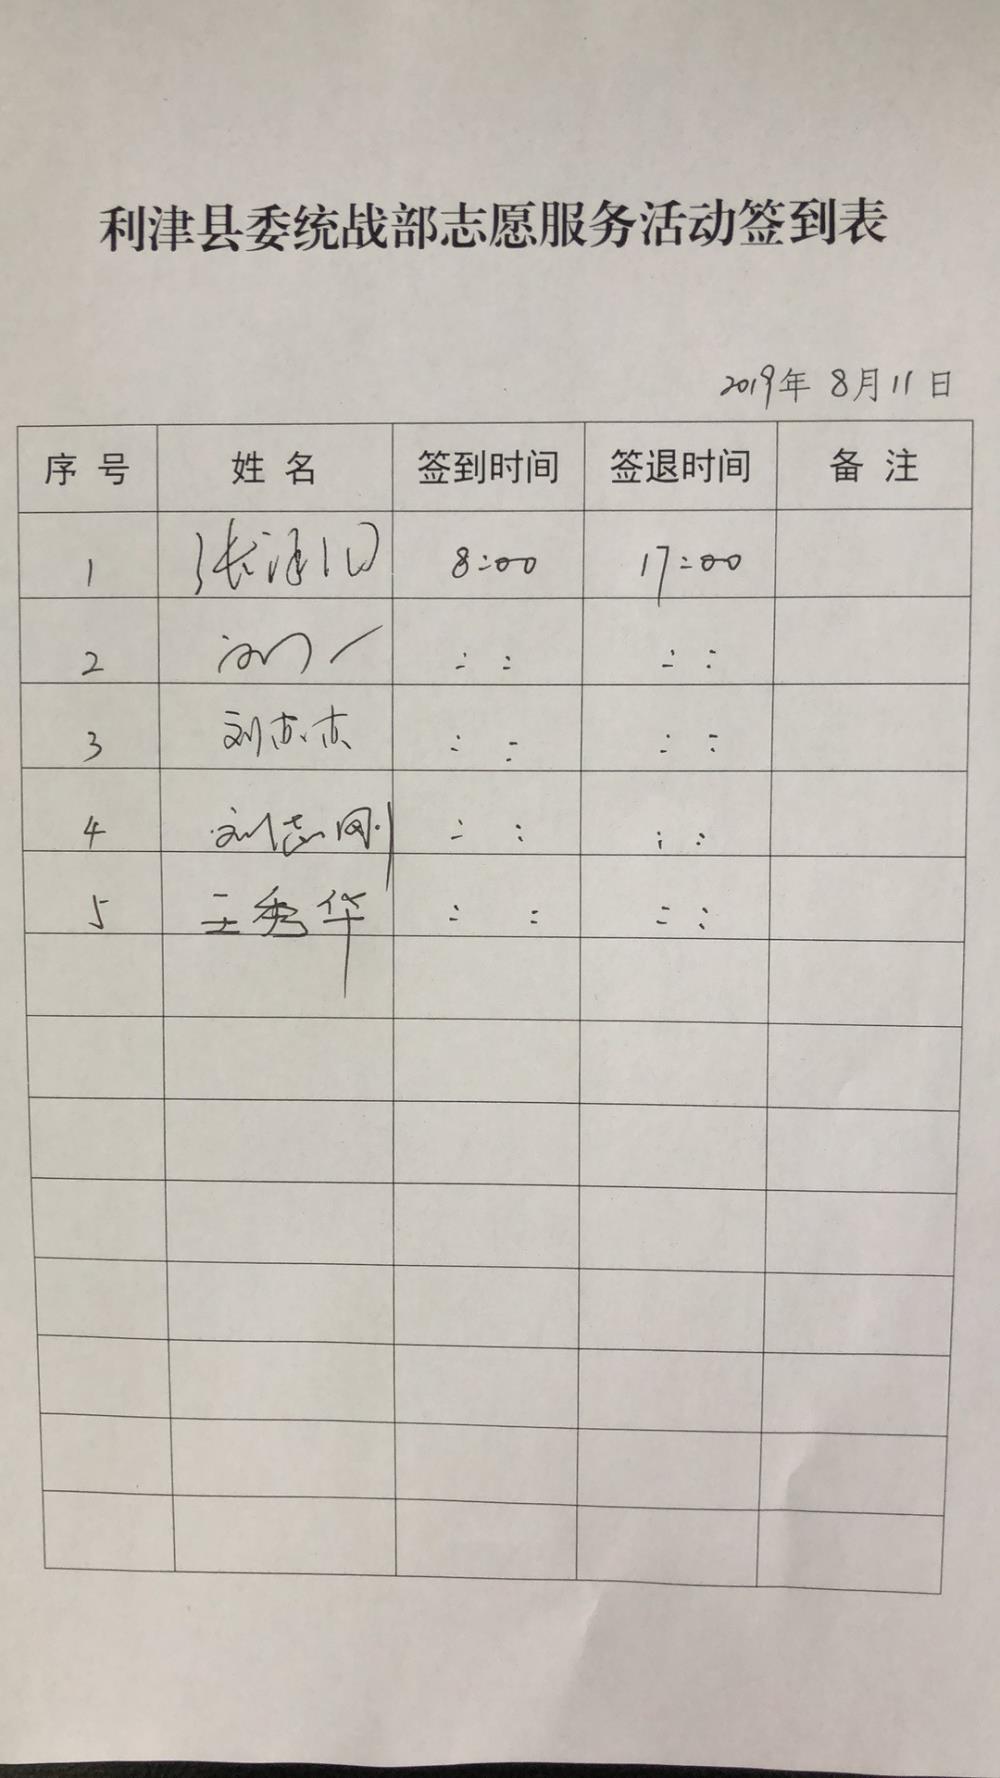 利津县委统战部志愿服务活动签到表
2019年 8月11日
序号 姓名 签到时间 签退时间 备注
1 8:00 17:00
2 : : : :
3 : : : :
4 刘志刚 : : : :
5 王秀华 : : : :